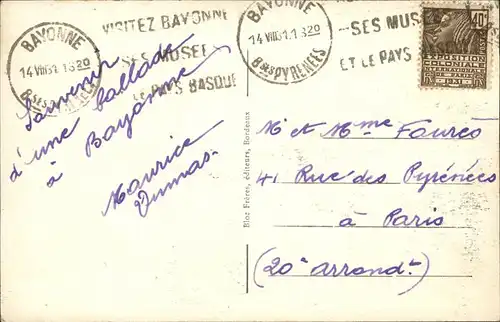 BAYONNE
14 VIII 31.1320
Bses PYRENEES
VISITEZ BAYONNE
SES MUSEE
ET LE PAYS BASQUE
BAYONNE
14 VIII 31.1320
Bses PYRENEES
SES MUSE
ET LE PAYS BASQUE
40c
EXPOSITION
COLONIALE
INTERNATIONALE
PARIS
1931
Souvenir
d'une ballade
à Bayonne
Maurice
Dumas.
Bloc Frères, éditeurs, Bordeaux
M et Mme Faurès
41 Rue des Pyrénées
à Paris
(20e arrondt)